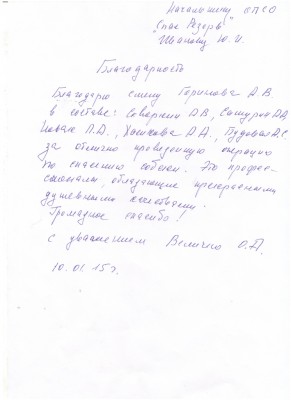 Начальнику ОПСО
"Спас Резерв"
Иванову Ю. И.
Благодарность
Благодарю смену Горшкова А.В
в составе: Северкин А.В,
Новак П.А., Хомкова А.А.,
за отлично проведенную операцию
по спасению собаки. Это профес-
сионалы, обладающие прекрасными
душевными качествами.
Громадное спасибо!
С уважением Величко О.
10.01.15г.